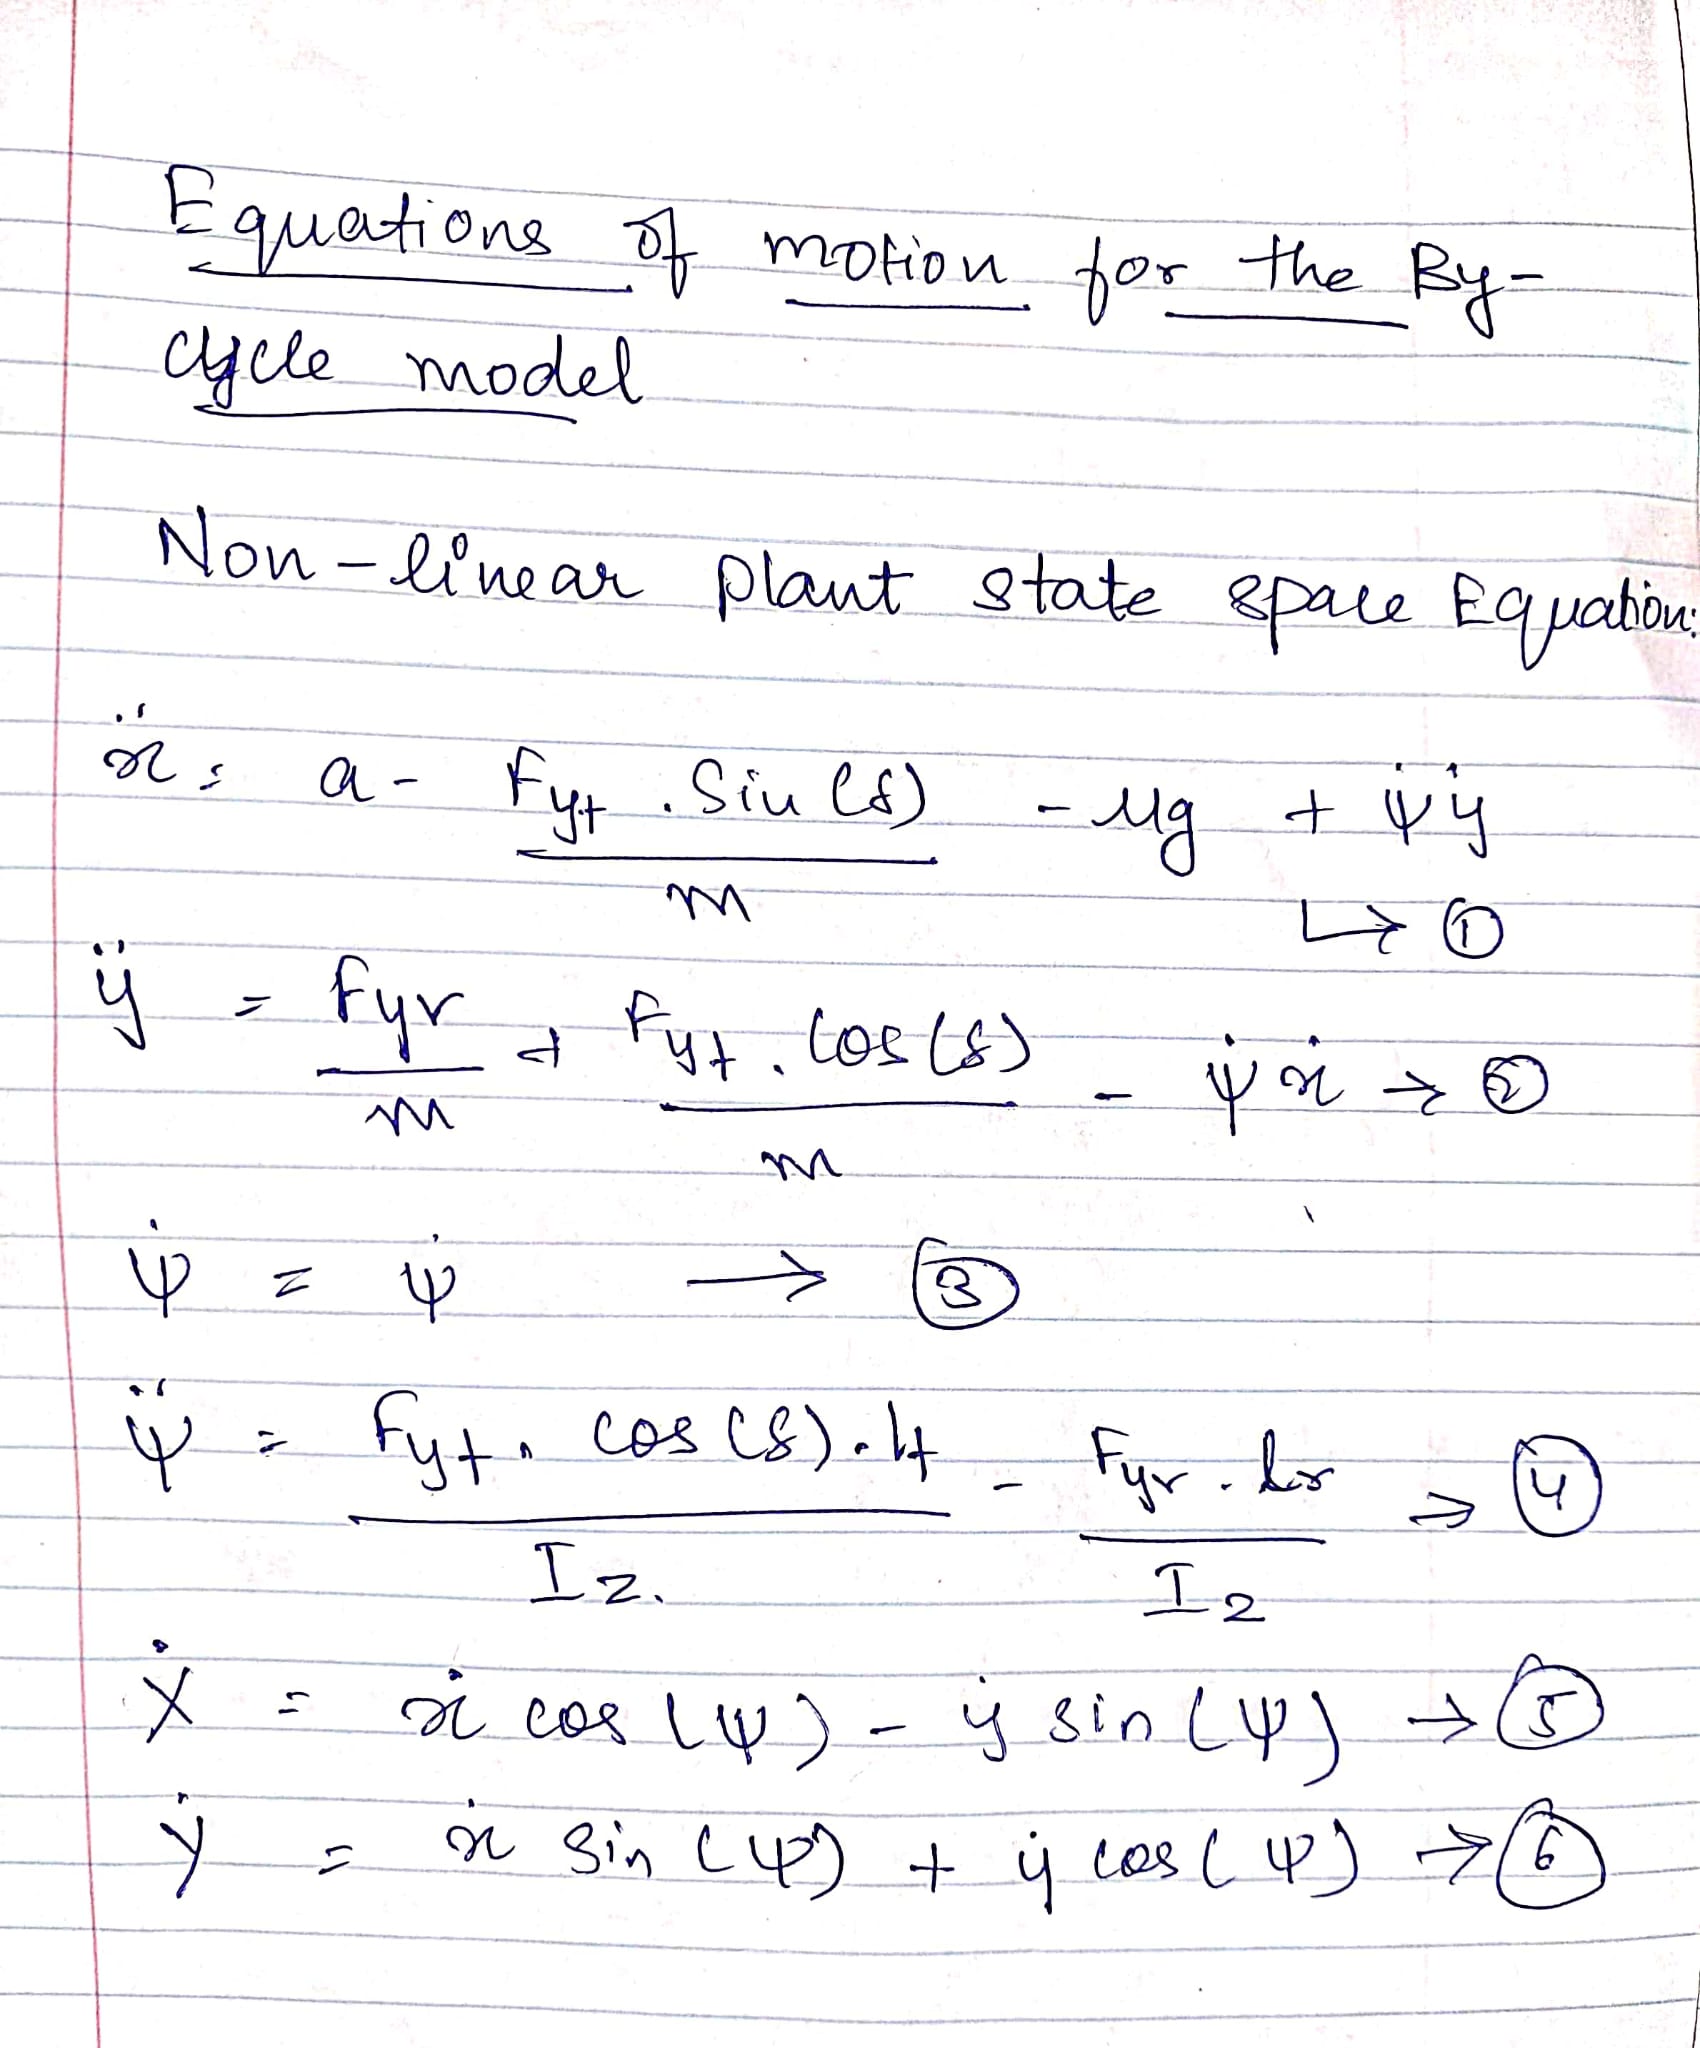 Equations of motion for the By-
cycle model
Non-linear plant state space Equation:
ẍ = a - (Fyf . Sin (δ))/m - μg + ψ̇ẏ
↳ ①
ÿ = Fyr/m + (Fyf . Cos (δ))/m - ψ̇ẋ → ②
ψ̇ = ψ̇ → ③
ψ̈ = (Fyf . cos (δ) . lf)/Iz. - (Fyr . lr)/Iz → ④
Ẋ = ẋ cos (ψ) - ẏ sin (ψ) → ⑤
Ẏ = ẋ sin (ψ) + ẏ cos (ψ) → ⑥